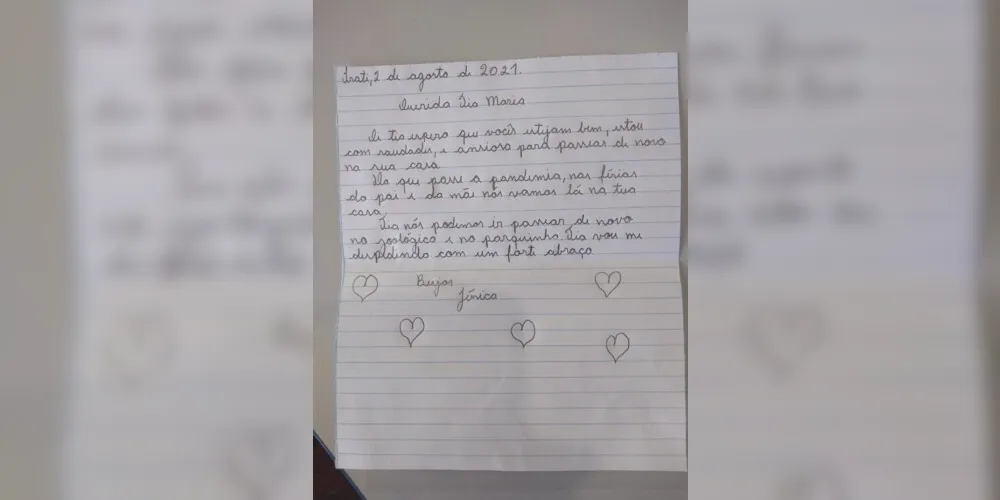 Irati, 2 de agosto de 2021.
Querida Tia Maria
Oi tia espero que vocês estejam bem, estou
com saudades, e ansiosa para passear de novo
na sua casa
que passe a pandemia, nas férias
do pai e da mãe nós vamos lá na tua
casa.
Tia nós podemos ir passear de novo
no zoológico e no parquinho. Tia vou me
despedindo com um forte abraço
Beijos